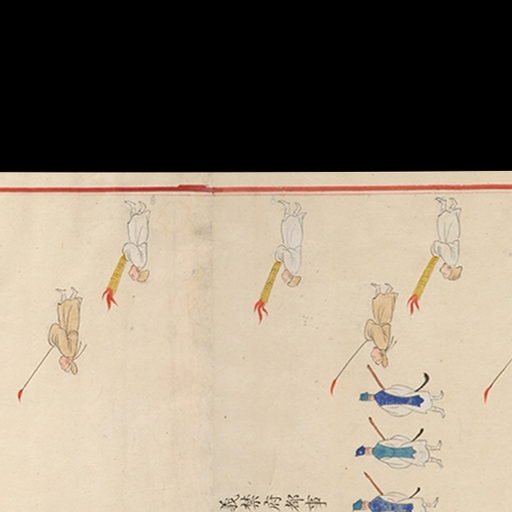 義禁府都事